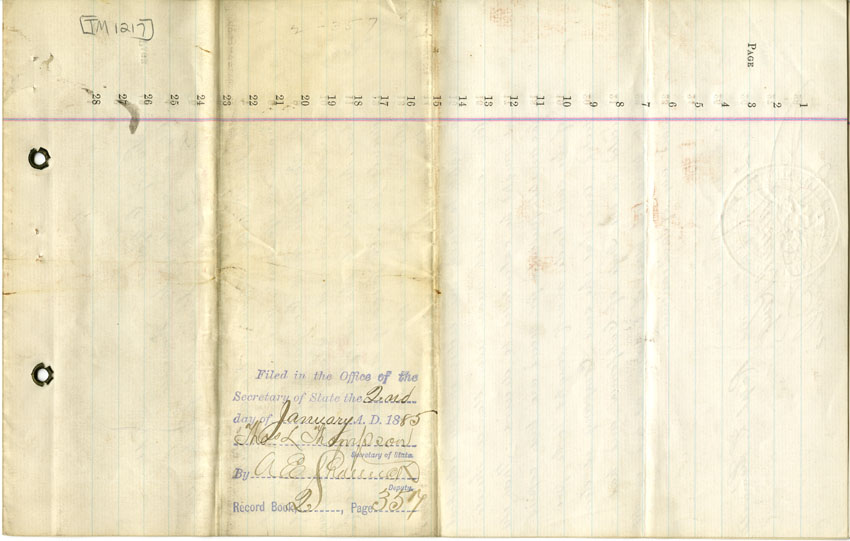 [TM 1217]
2-357
PAGE
1
2
3
4
5
6
7
8
9
10
11
12
13
14
15
16
17
18
19
20
21
22
23
24
25
26
27
28
Filed in the Office of the
Secretary of State the 2nd
day of January A. D. 1885
Thos L Thompson
Secretary of State.
By A E
Deputy.
Record Book 2, Page 357